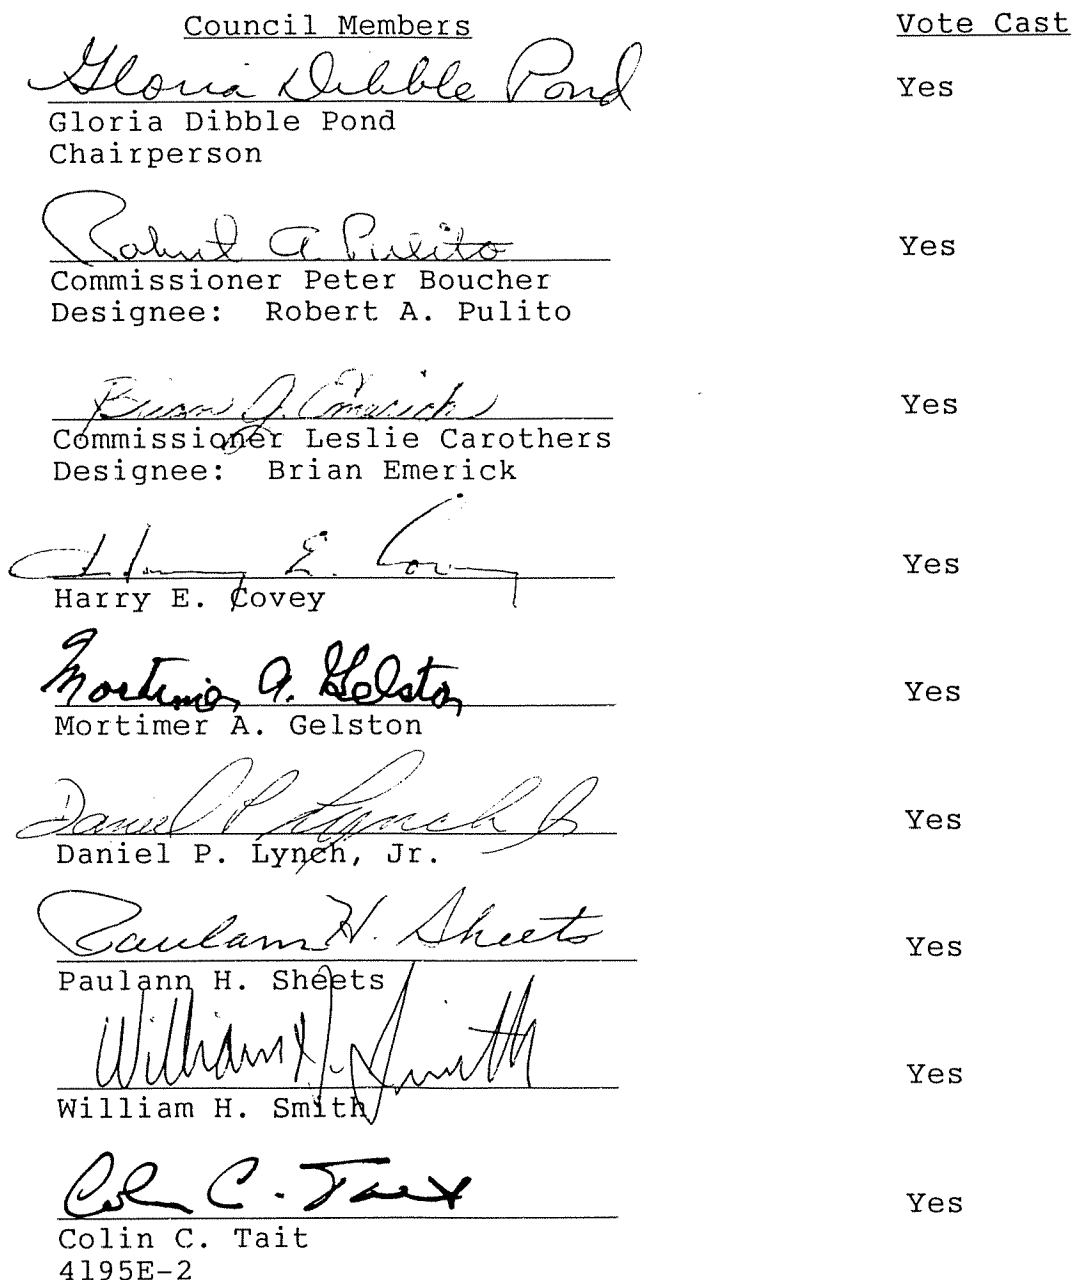 Council Members Vote Cast
Gloria Dibble Pond Yes
Gloria Dibble Pond
Chairperson
Robert A. Pulito Yes
Commissioner Peter Boucher
Designee: Robert A. Pulito
Brian J. Emerick Yes
Commissioner Leslie Carothers
Designee: Brian Emerick
Harry E. Covey Yes
Harry E. Covey
Mortimer A. Gelston Yes
Mortimer A. Gelston
Daniel P Lynch Jr Yes
Daniel P. Lynch, Jr.
Paulann H. Sheets Yes
Paulann H. Sheets
William H. Smith Yes
William H. Smith
Colin C. Tait Yes
Colin C. Tait
4195E-2